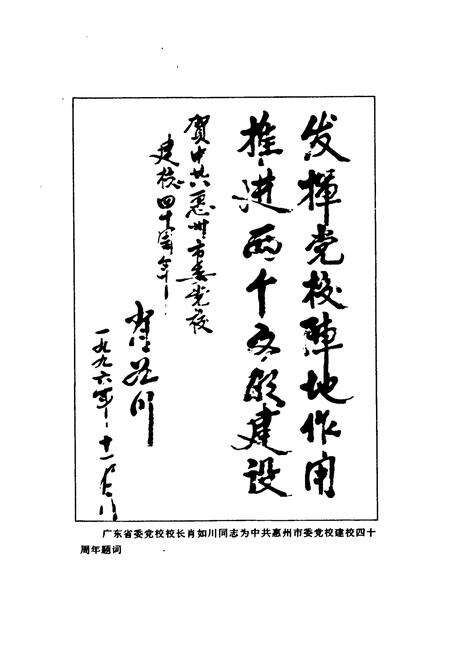 发揮党校陣地作用
推进两个文明建设
賀中共惠州市委党校
建校四十周年
肖如川
一九九六年十一月
广东省委党校校长肖如川同志为中共惠州市委党校建校四十
周年题词